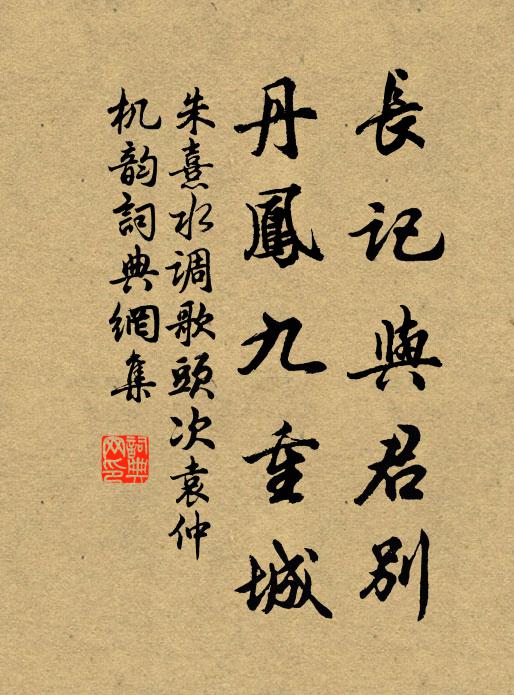 長記與君别
丹鳳九重城
朱熹水调歌頭次袁仲
机韵詞典網集
詞典网印